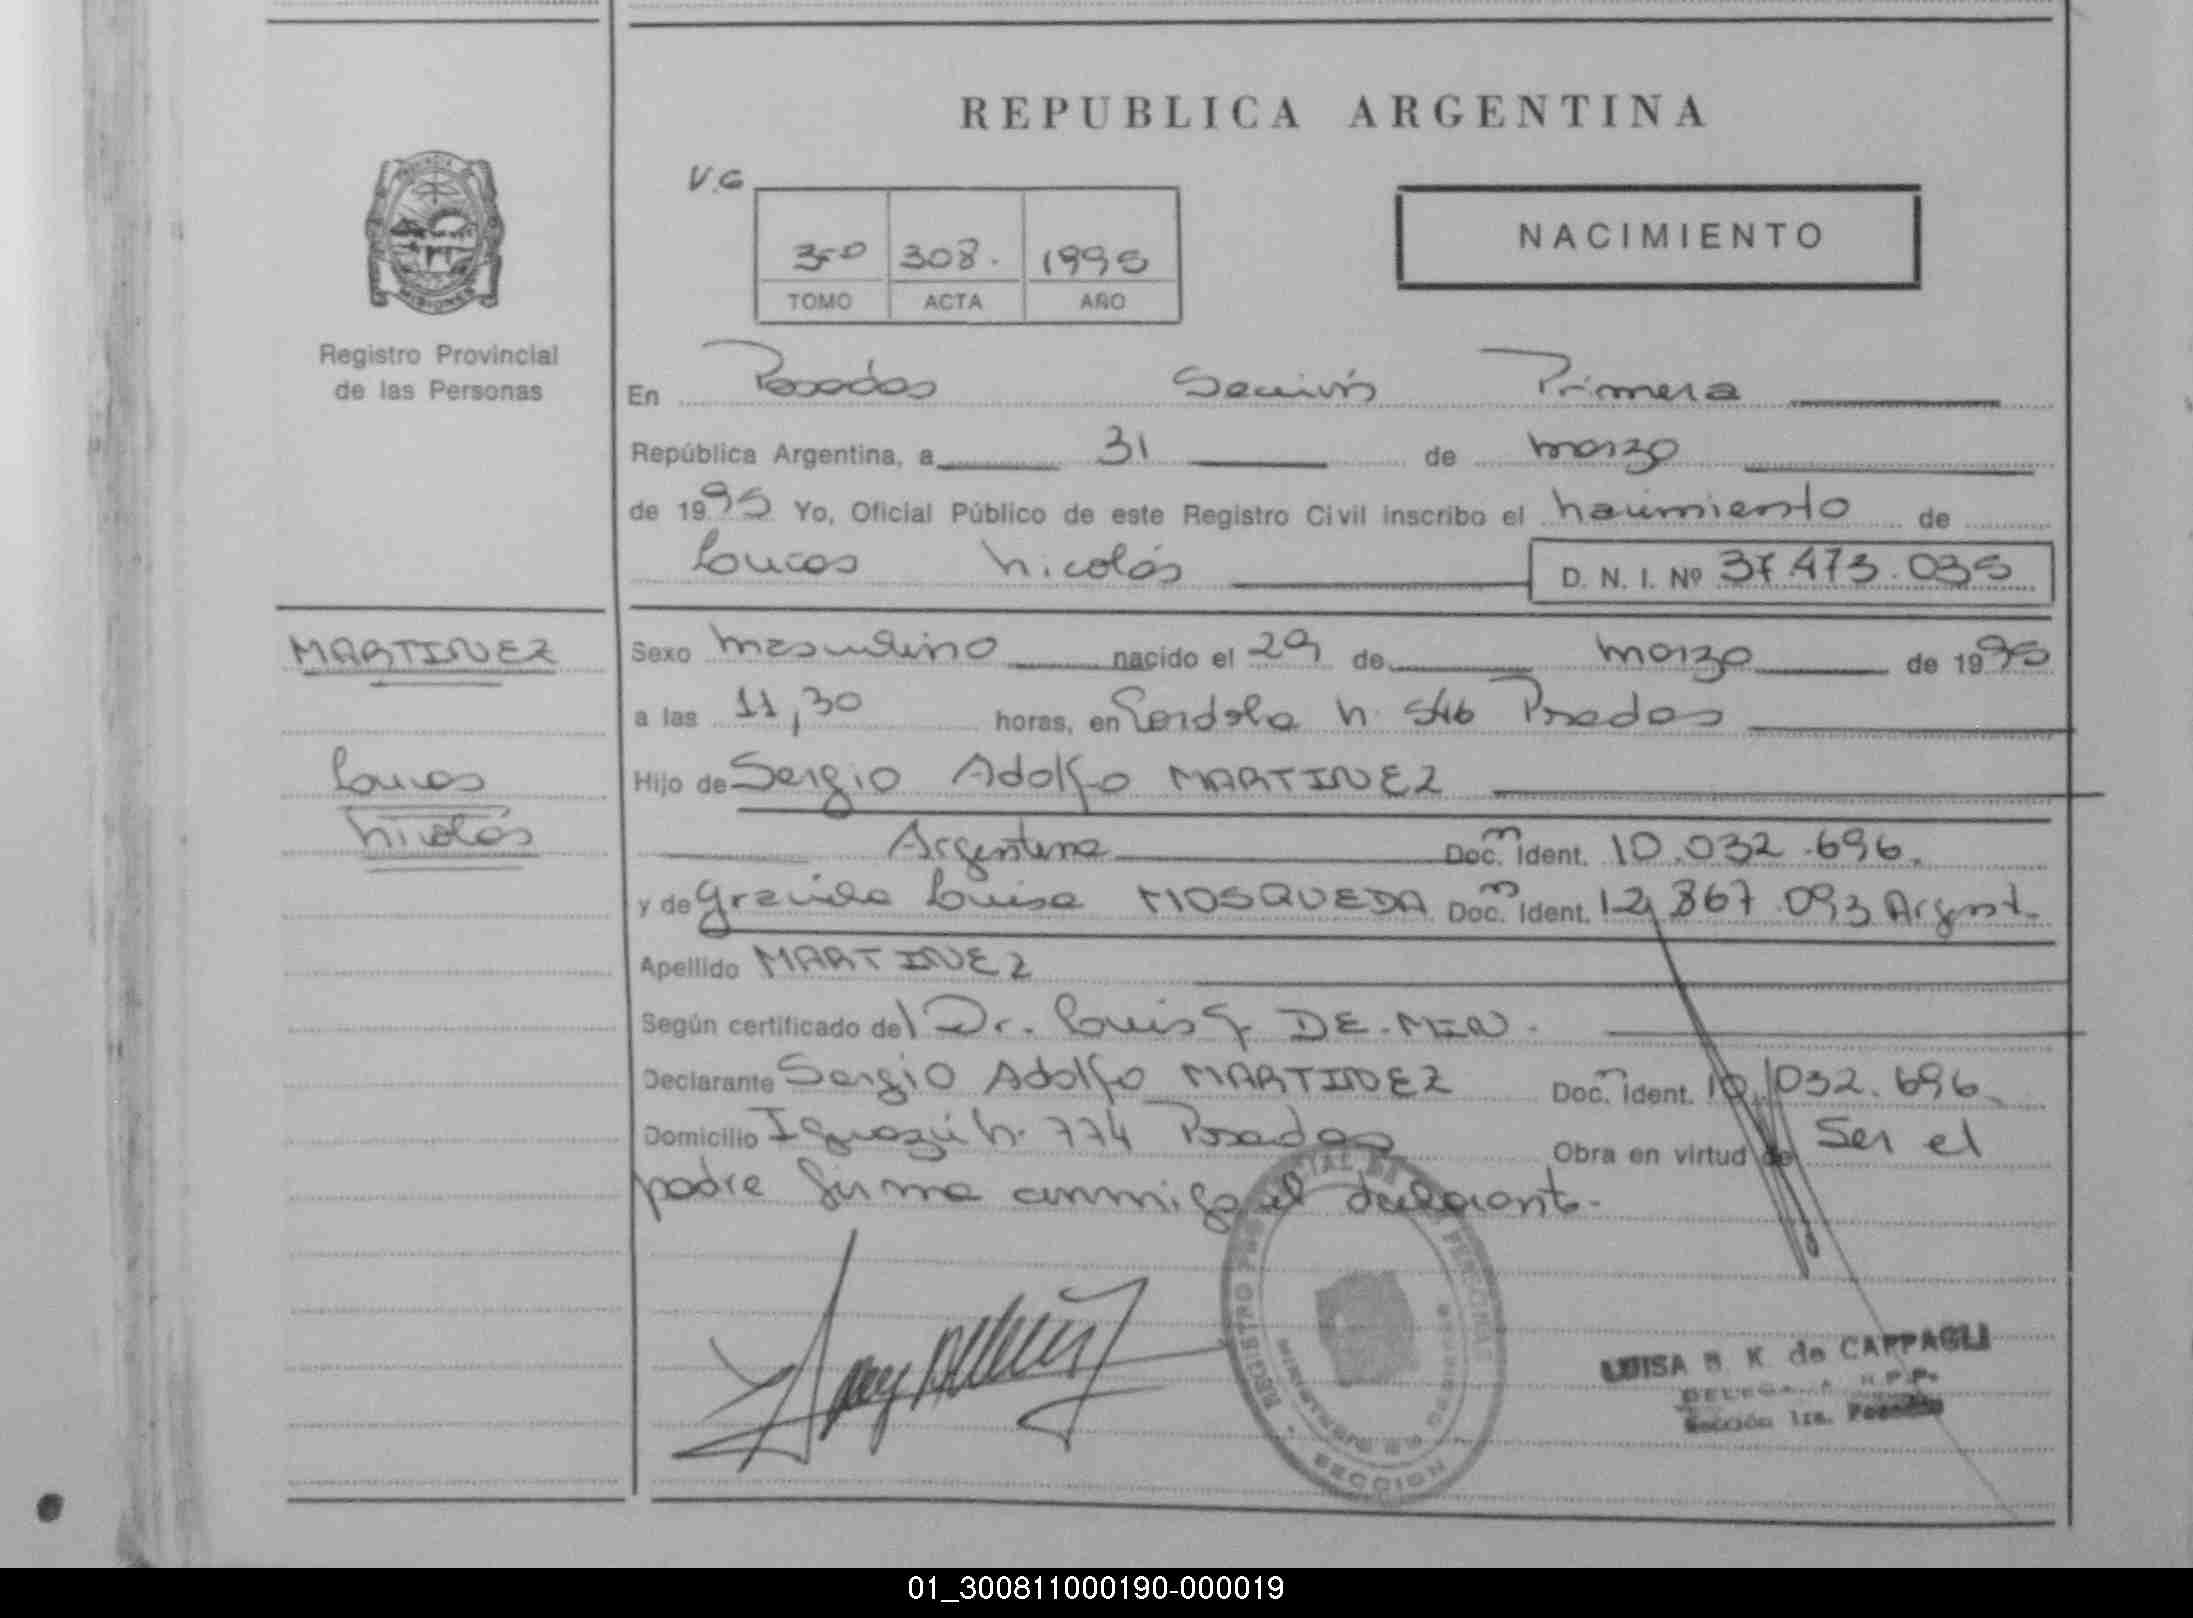 REPUBLICA ARGENTINA
V.G
NACIMIENTO
3ro 308. 1995
TOMO ACTA AÑO
PROVINCIA
MISIONES
Registro Provincial
de las Personas
En Posadas Sección Primera
República Argentina, a 31 de marzo
de 1995 Yo, Oficial Público de este Registro Civil inscribo el nacimiento de
Lucas Nicolás D. N. I. Nº 37.473.035
MARTINEZ
Sexo masculino nacido el 29 de marzo de 1995
a las 11,30 horas, en Cordoba N. 546 Posadas
Lucas
Hijo de Sergio Adolfo MARTINEZ
Nicolás
Argentina Doc. Ident. 10.032.696.
y de Graciela Luisa MOSQUEDA Doc. Ident. 12.867.093 Argent.
Apellido MARTINEZ
Según certificado del Dr. Luis DE MIN.
Declarante Sergio Adolfo MARTINEZ Doc. Ident. 10.032.696
Domicilio Iguazú N. 774 Posadas Obra en virtud de Ser el
padre firma conmigo el declarante.
REGISTRO PERSONAS
SECCION
LUISA B. K. de CAPPAGLI
DELEGADA R.P.P.
Sección 1ra. Posadas
01_300811000190-000019